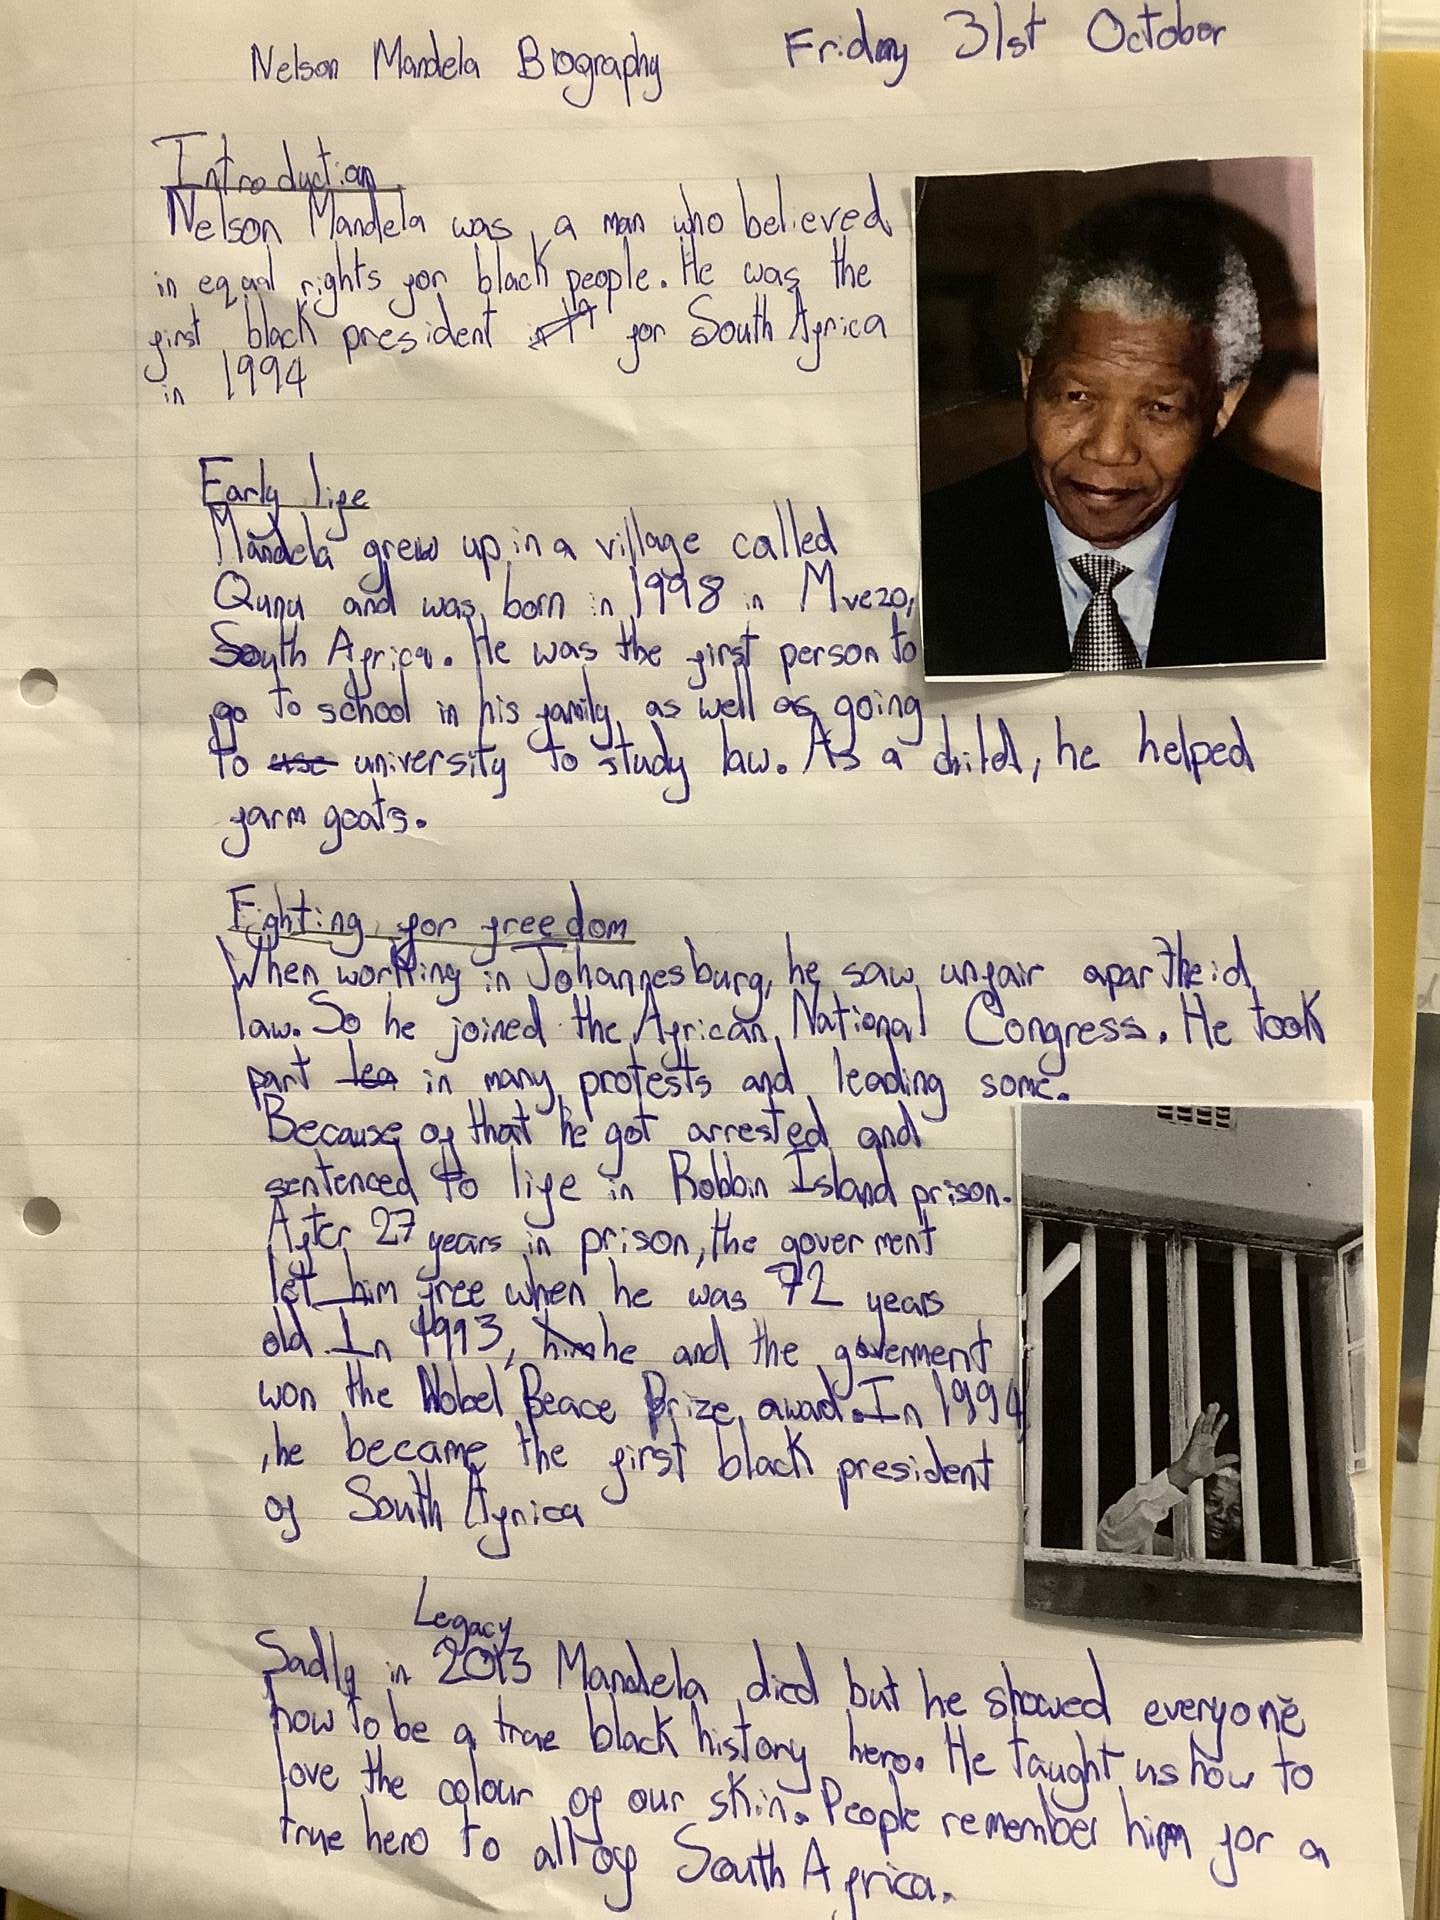 Nelson Mandela Biography Friday 31st October
Introduction
Nelson Mandela was a man who believed
in equal rights for black people. He was the
first black president for South Africa
in 1994
Early life
Mandela grew up in a village called
Qunu and was born in 1998 in Mvezo,
South Africa. He was the first person to
go to school in his family, as well as going
to use university to study law. As a child, he helped
farm goats.
Fighting for freedom
When working in Johannesburg, he saw unfair apartheid
law. So he joined the African National Congress. He took
part lea in many protests and leading some.
Because of that he got arrested and
sentenced to life in Robbin Island prison.
After 27 years in prison, the goverment
let him free when he was 72 years
old. In 1993, him he and the goverment
won the Nobel Peace Prize award. In 1994
, he became the first black president
of South Africa
Legacy
Sadly in 2013 Mandela died but he showed everyone
how to be a true black history hero. He taught us how to
love the colour of our skin. People remember him for a
true hero to all of South Africa.